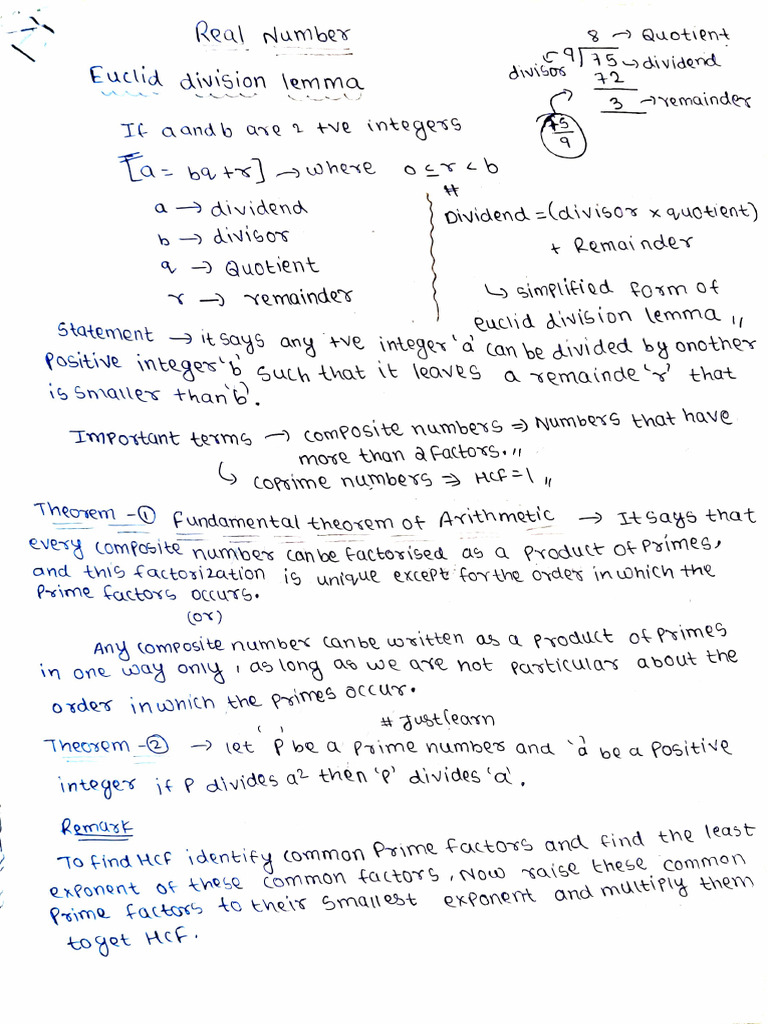 Real Number
8 → Quotient
divisor 9 75 → dividend
72
3 → remainder
75
9
Euclid division lemma
If a and b are 2 +ve integers
[a = bq + r] → where 0 ≤ r < b
a → dividend
b → divisor
q → Quotient
r → remainder
#
Dividend = (divisor × quotient)
+ Remainder
↳ simplified form of
euclid division lemma,,
Statement → it says any +ve integer 'a' can be divided by onother
positive integer 'b' such that it leaves a remainde 'r' that
is smaller than 'b'.
Important terms → composite numbers ⇒ Numbers that have
more than 2 factors.,,
↳ coprime numbers ⇒ HCF = 1,,
Theorem - ① Fundamental theorem of Arithmetic → It says that
every composite number can be factorised as a product of primes,
and this factorization is unique except for the order in which the
prime factors occurs.
(or)
Any composite number can be written as a product of primes
in one way only, as long as we are not particular about the
order in which the primes occur.
# Just learn
Theorem - ② → let 'P' be a prime number and 'a' be a positive
integer if P divides a² then 'p' divides 'a'.
Remark
To find HCF identify common Prime factors and find the least
exponent of these common factors, Now raise these common
prime factors to their smallest exponent and multiply them
to get HCF.